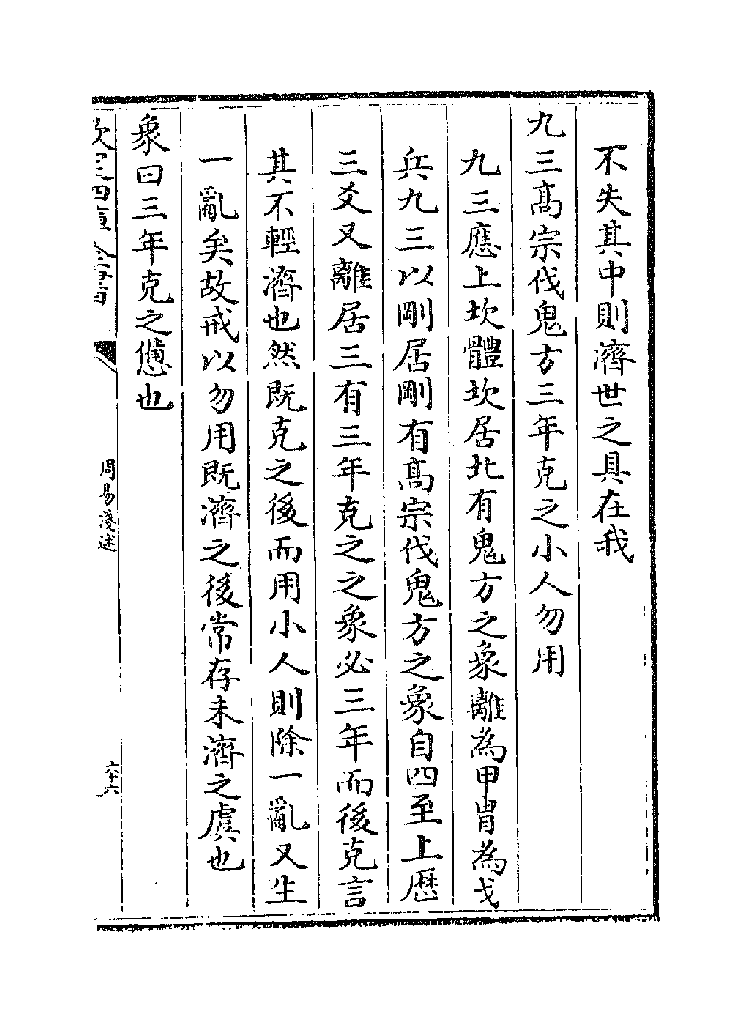 不失其中則濟世之具在我
九三髙宗伐鬼方三年克之小人勿用
九三應上坎體坎居北有鬼方之象離為甲胄為戈
兵九三以剛居剛有髙宗伐鬼方之象自四至上歴
三爻又離居三有三年克之之象必三年而後克言
其不輕濟也然既克之後而用小人則除一亂又生
一亂矣故戒以勿用既濟之後常存未濟之虞也
象曰三年克之憊也
欽定四庫全書
周易淺述
六十六